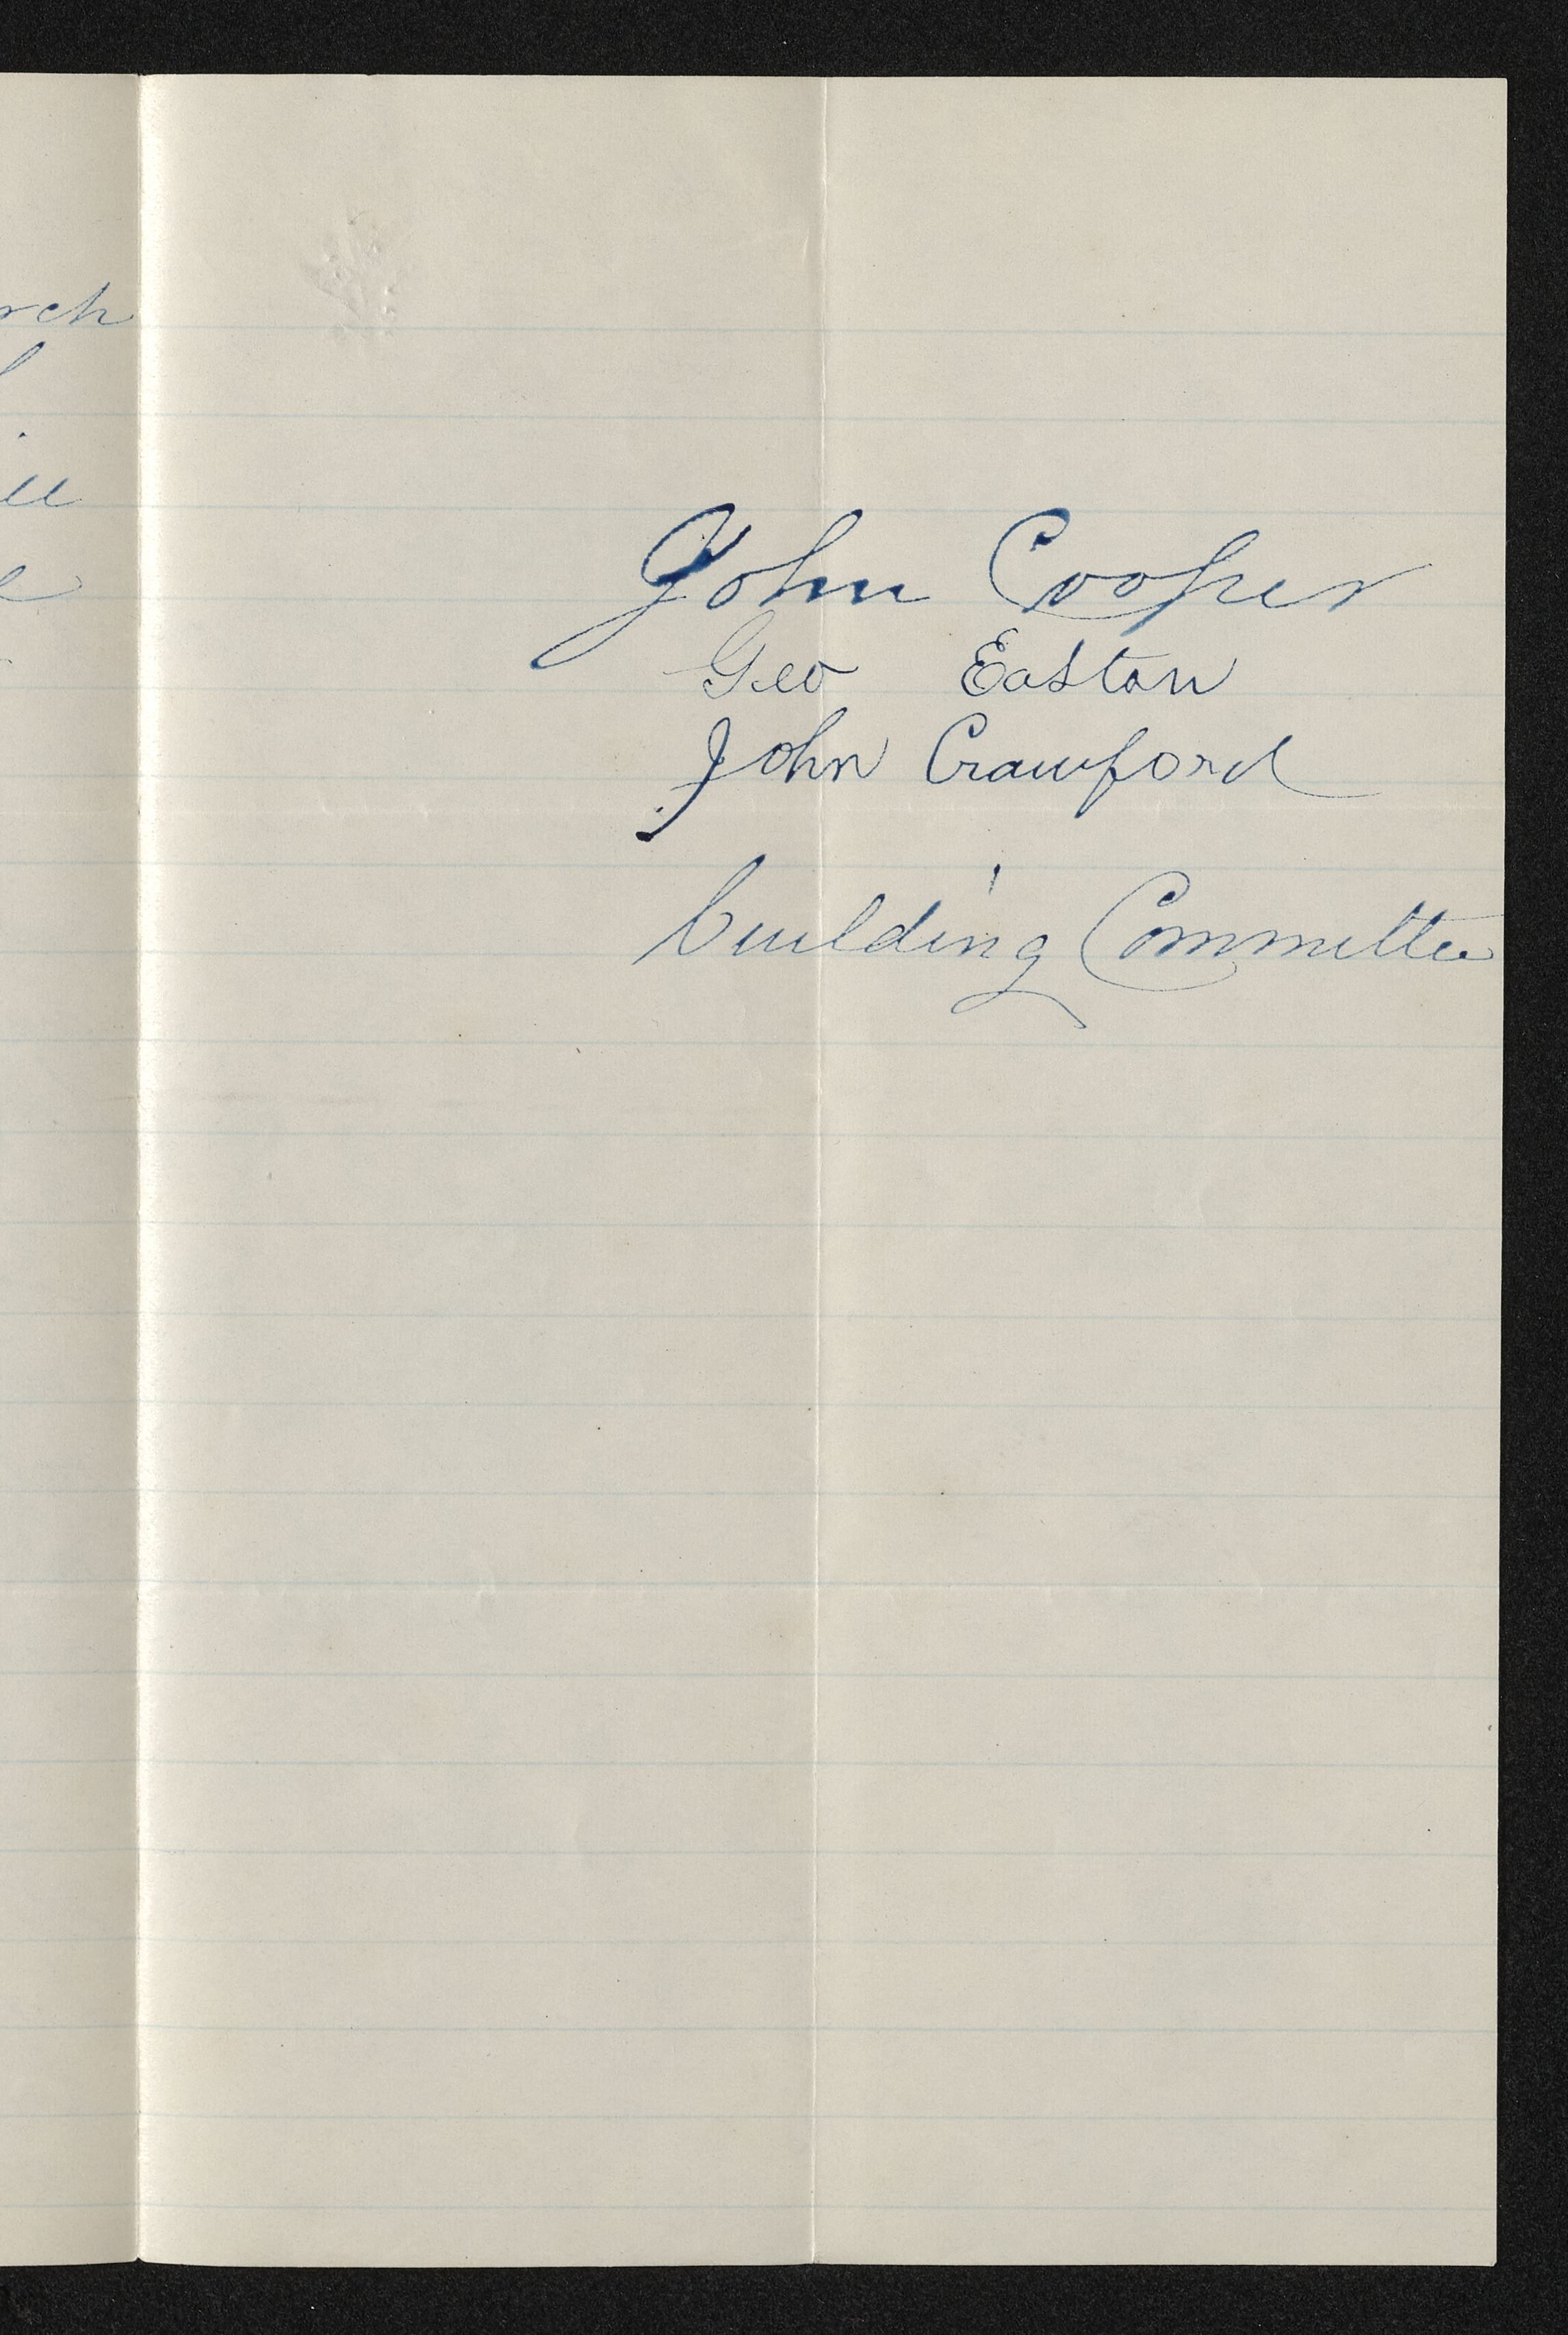 John Cooper
Geo Easton
John Crawford
building Committee